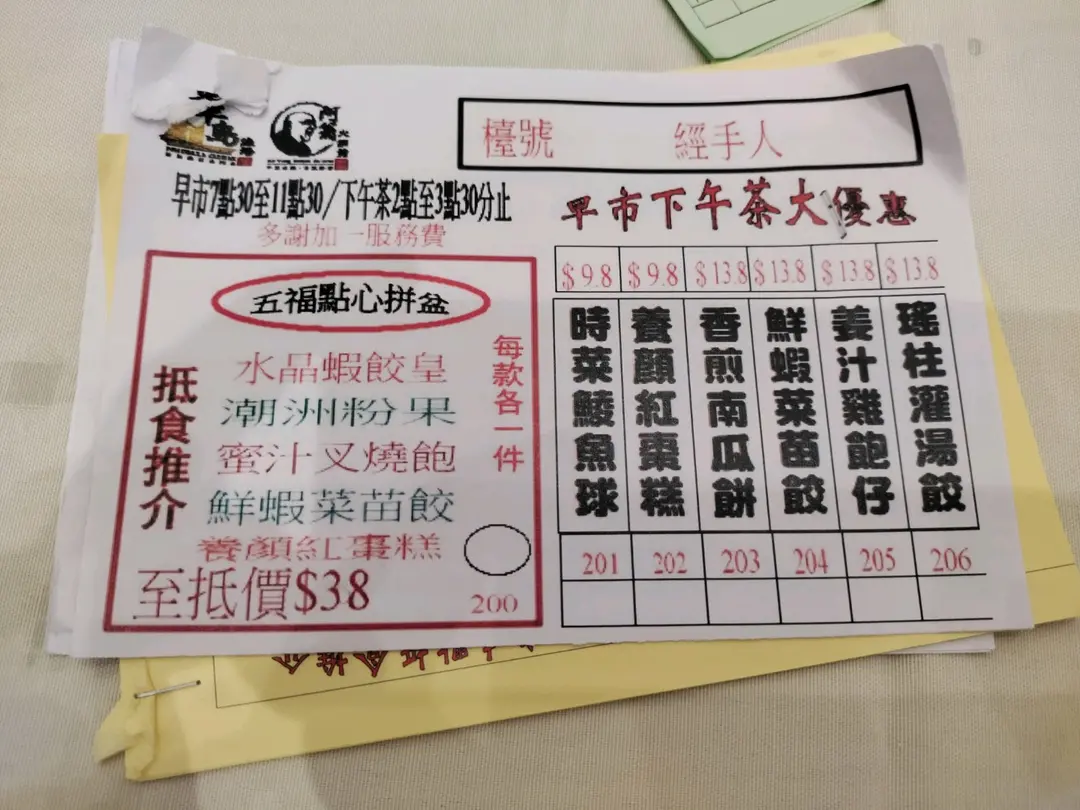 檯號 經手人
早市7點30至11點30/下午茶2點至3點30分止
多謝加一服務費
五福點心拼盆
抵食推介
水晶蝦餃皇
潮洲粉果
蜜汁叉燒飽
鮮蝦菜苗餃
養顏紅棗糕
每款各一件
至抵價$38
200
早市下午茶大優惠
$9.8 $9.8 $13.8 $13.8 $13.8 $13.8
時菜鯪魚球
養顏紅棗糕
香煎南瓜餅
鮮蝦菜苗餃
姜汁雞飽仔
瑤柱灌湯餃
201 202 203 204 205 206